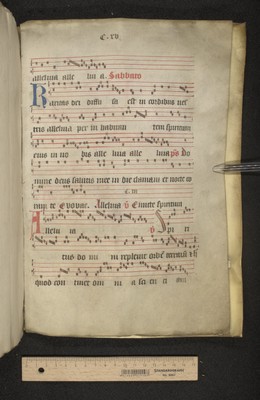 C. xv.
alleluia alle lui a. Sabbato
Karitas dei diffu sa est in cordibus ves
tris alleluia per in habitan tem spiritum
eius in uo bis alle luia alle luia ps Do
mine deus salutis mee in die clamaui et nocte co
ram te Euouae. Alleluia v Emitte spiritum
Alleluia v Spi ri
tus do mi ni repleuit orbem terrarum et h
quod con tinet om ni a sci en ci